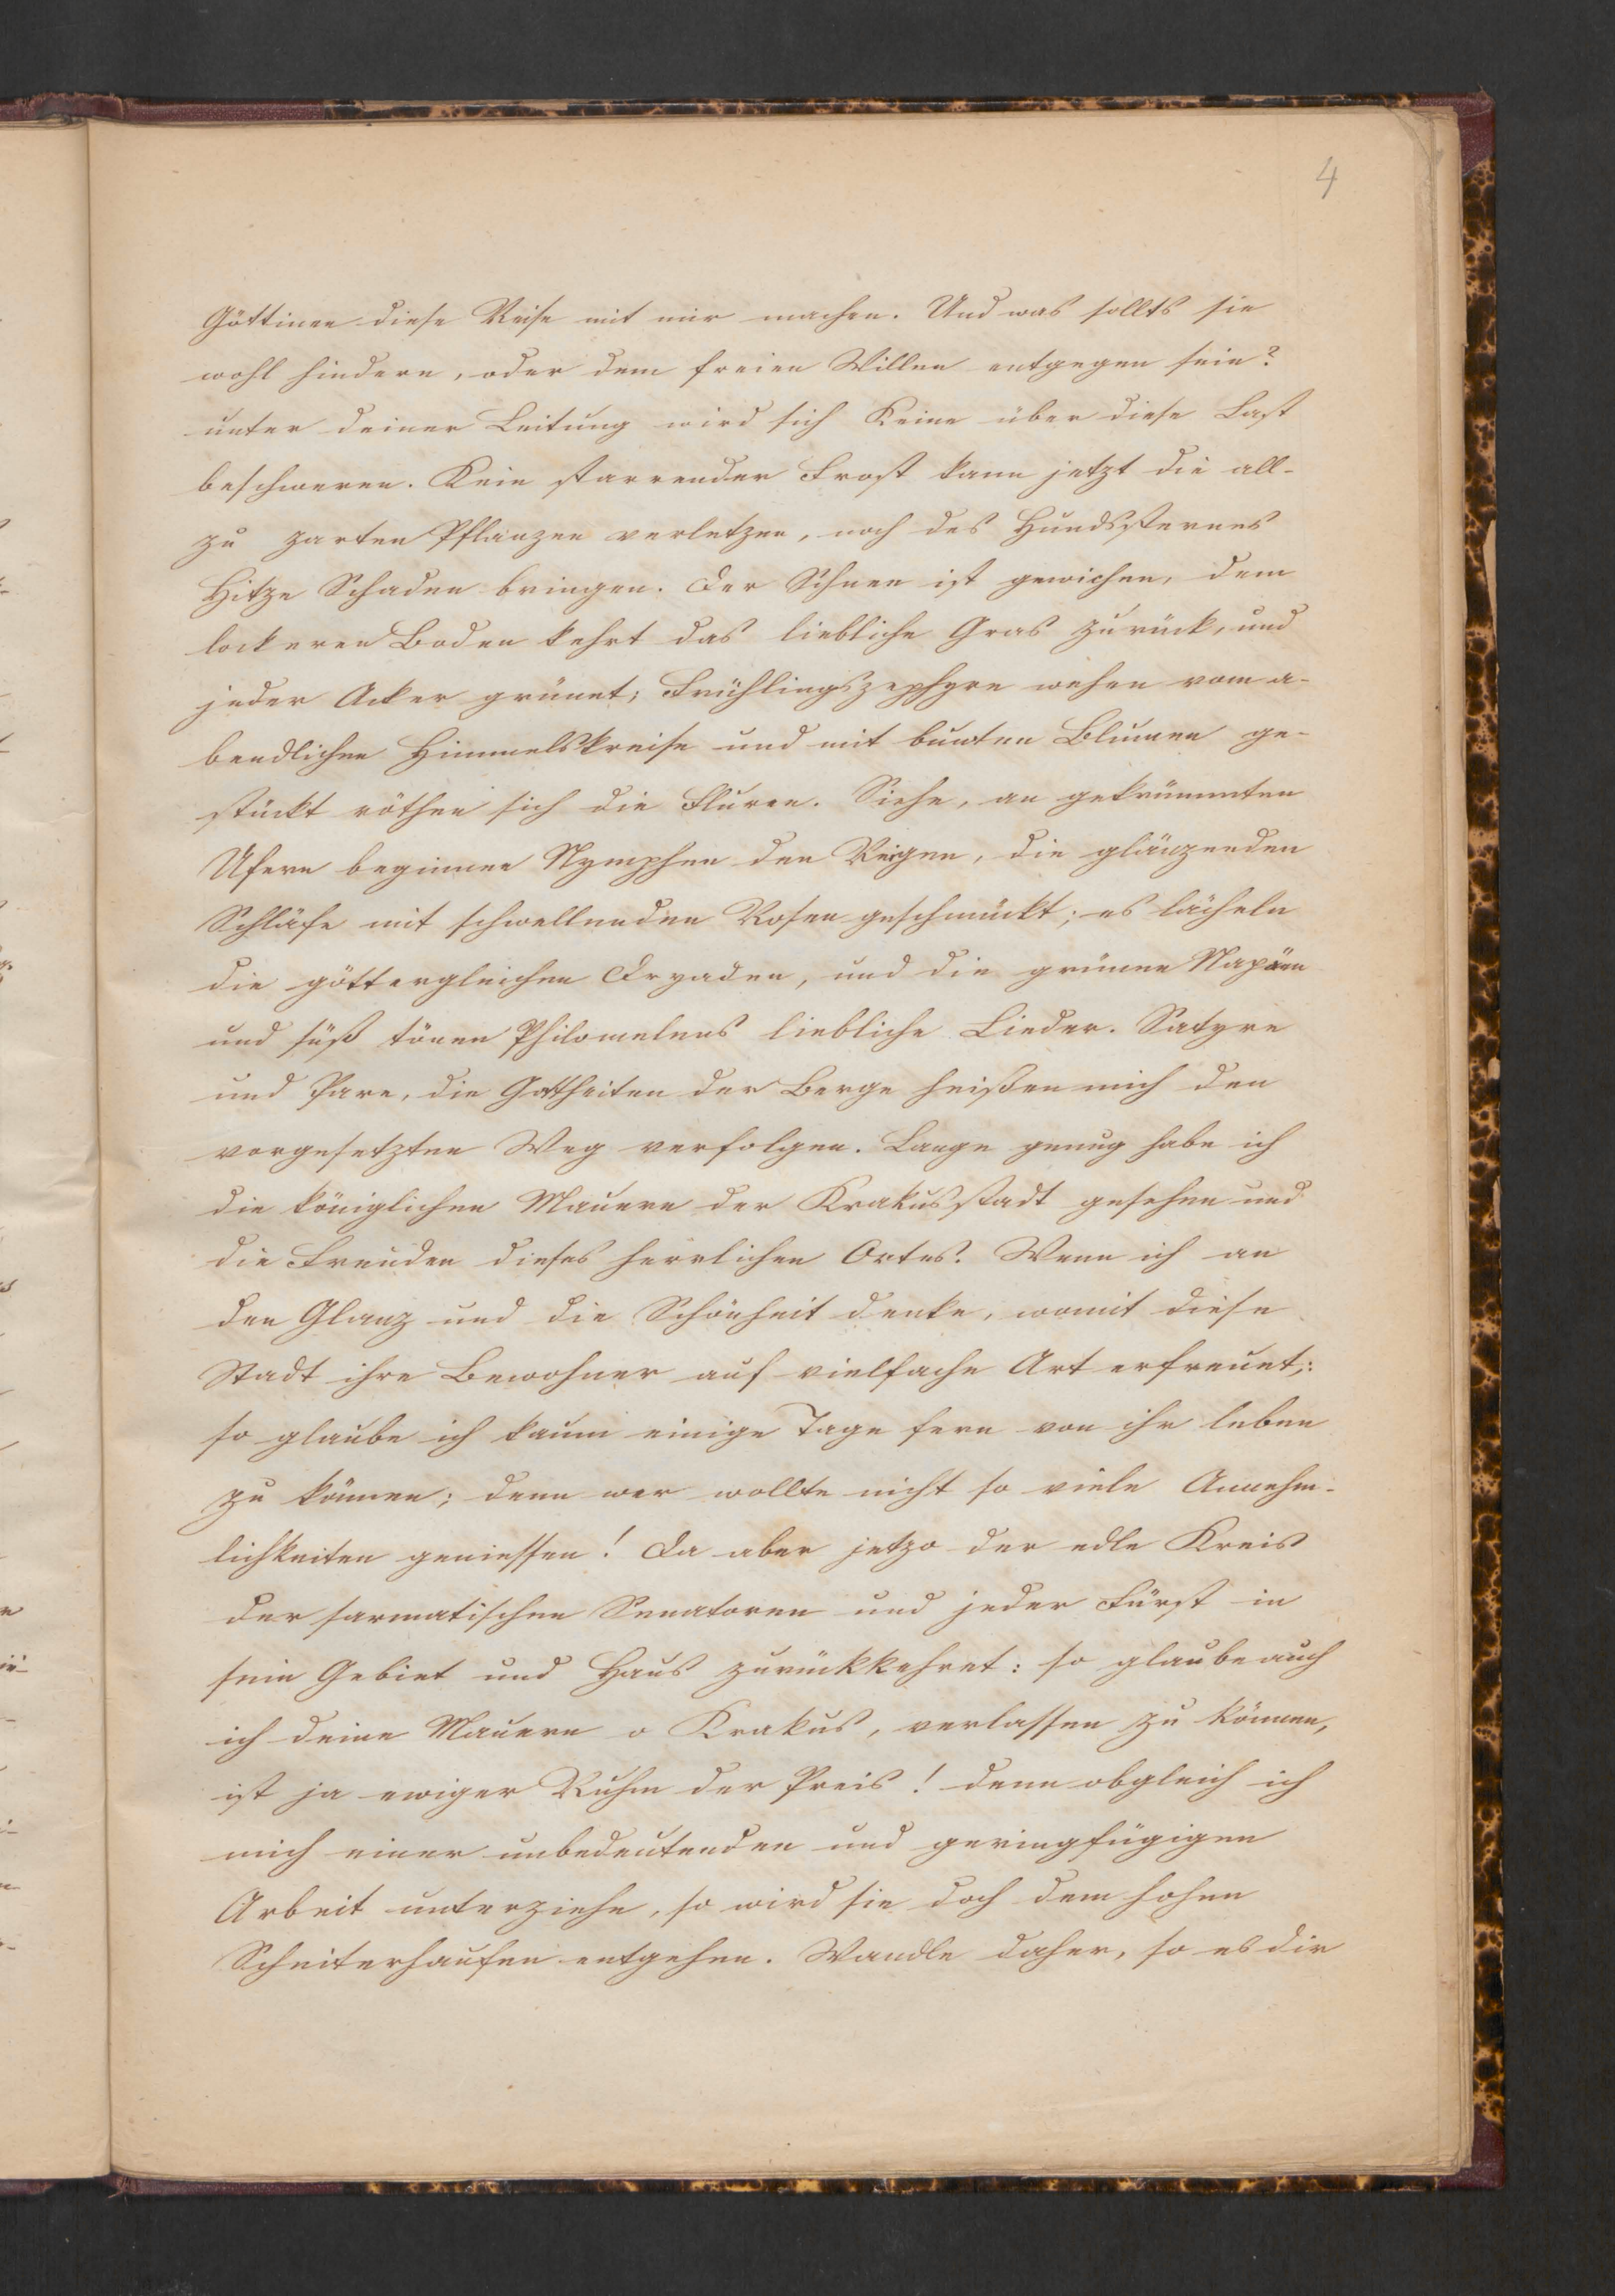 4
Göttinen diese Reise mit mir machen. Und was sollts sie
wohl hindern, oder dem freien Willen entgegen sein?
unter deiner Leitung wird sich Keine über diese Last
beschweren. Kein starrender Frost kann jetzt die all-
zu zarten Pflanzen verletzen, noch des Hundssternes
Hitze Schaden bringen. Der Schnee ist gewichen, dem
lockeren Boden kehrt das liebliche Gras zurück, und
jeder Acker grünet; Frühlingszephyre wehen vom a-
bendlichen Himmelskreise und mit bunten Blumen ge-
stückt röthen sich die Fluren. Siehe, an gekrümmten
Ufern beginnen Nymphen den Reigen, die glänzenden
Schläfe mit schwellenden Rosen geschmückt; es lächeln
die göttergleichen Dryaden, und die grünen Napäen
und süß tönen Philomelens liebliche Lieder. Satyre
und Pane, die Gottheiten der Berge heißen mich den
vorgesetzten Weg verfolgen. Lange genug habe ich
die königlichen Mauern der Krakusstadt gesehen und
die Freuden dieses herrlichen Ortes. Wenn ich an
den Glanz und die Schönheit denke, womit diese
Stadt ihre Bewohner auf vielfache Art erfreuet,:
so glaube ich kaum einige Tage fern von ihr leben
zu können; denn wer wollte nicht so viele Annehm-
lichkeiten geniessen! Da aber jetzo der edle Kreis
der sarmatischen Senatoren und jeder Fürst in
sein Gebiet und Haus zurückkehret: so glaube auch
ich deine Mauern o Krakus, verlassen zu können,
ist ja ewiger Ruhm der Preis! denn obgleich ich
mich einer unbedeutenden und geringfügigen
Arbeit unterziehe, so wird sie doch dem hohen
Scheiterhaufen entgehen. Wandle daher, so es dir